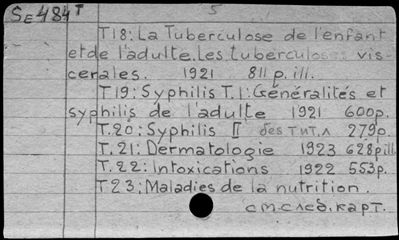 SE484T 5
T18: La Tuberculose de l'enfant
et de l'adulte. Les tuberculoses vis-
cerales. 1921 811 p. ill.
T19: Syphilis T.I: Généralités et
syphilis de l'adulte 1921 600p.
T.20: Syphilis II без тит.л 279p.
T.21: Dermatologie 1923 628p ill.
T.22: Intoxications 1922 553p.
T.23: Maladies de la nutrition.
см. след. карт.